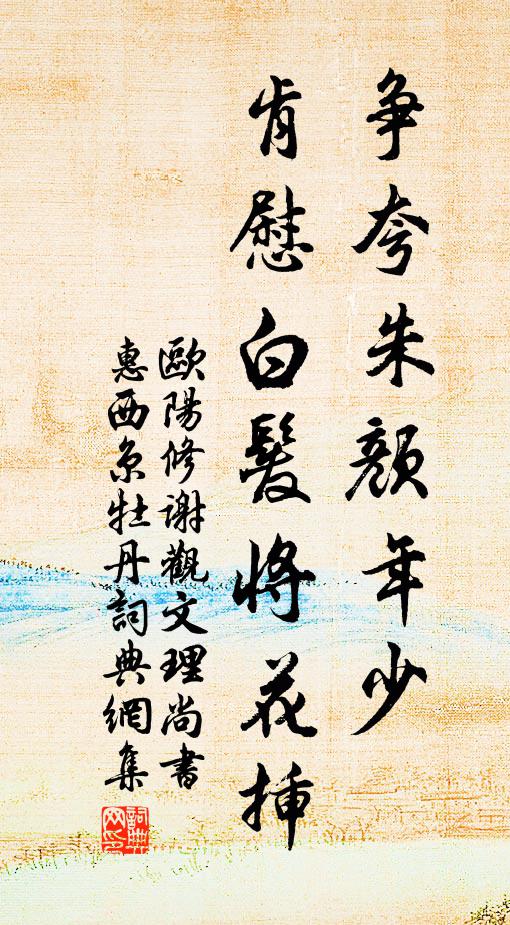 争夸朱顏年少
肯慰白髮將花插
歐陽修謝觀文理尚書
惠西京牡丹詞典網集